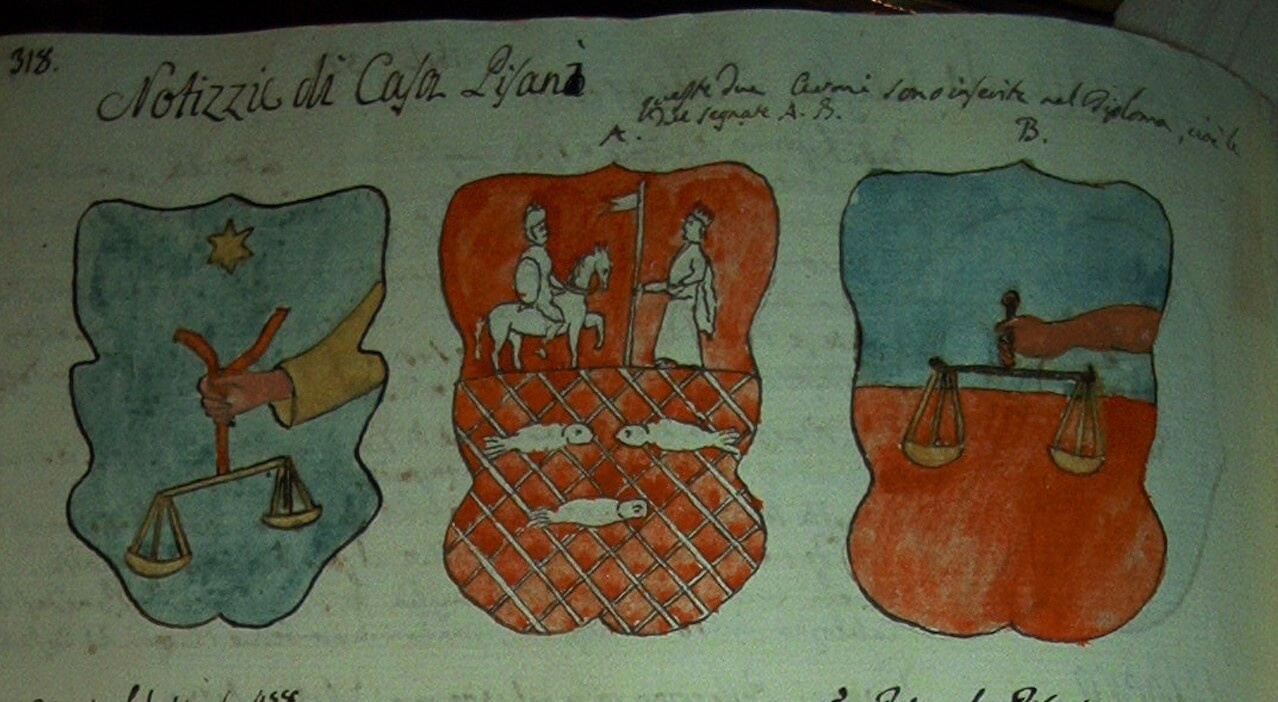 318.
Notizzie di Casa Pisani
queste due Arme sono inserite nel Diploma, cioè le
segnate A. B.
A.
B.